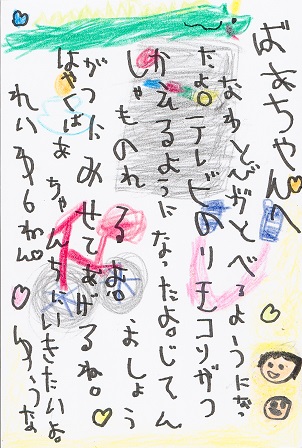 ばあちゃんへ
なわとびがとべるようになっ
たよ。テレビのリモコンがつ
かえるようになったよ。じてん
しゃものれるよ。おしょう
がつにみせてあげるね。
はやくばあちゃんちにいきたいよ。
れいわ6ねん ゆうな